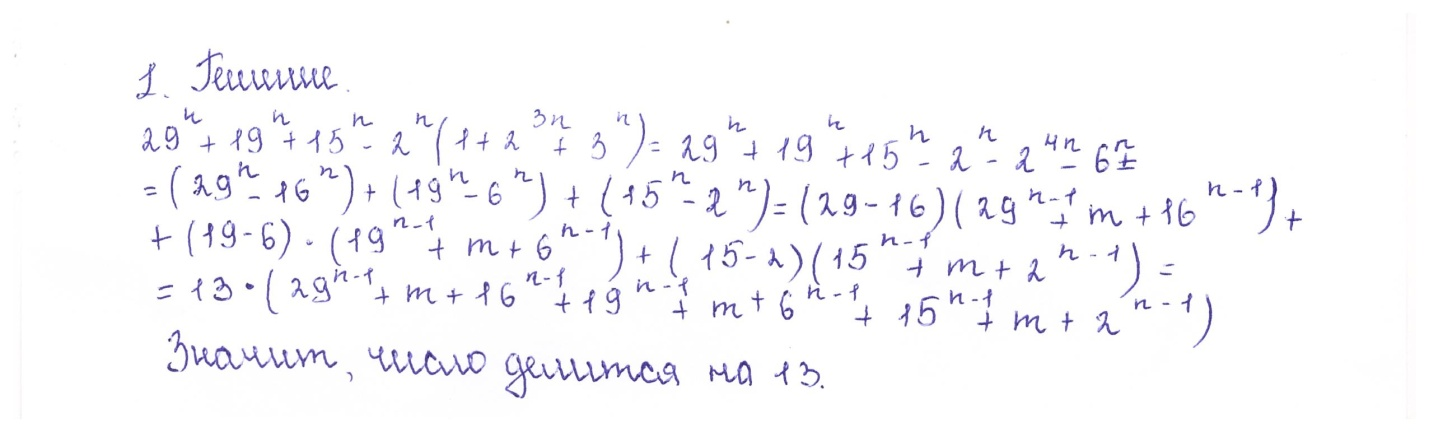 1. Решение.
29ⁿ + 19ⁿ + 15ⁿ - 2ⁿ(1 + 2³ⁿ + 3ⁿ) = 29ⁿ + 19ⁿ + 15ⁿ - 2ⁿ - 2⁴ⁿ - 6ⁿ =
= (29ⁿ - 16ⁿ) + (19ⁿ - 6ⁿ) + (15ⁿ - 2ⁿ) = (29 - 16)(29ⁿ⁻¹ + m + 16ⁿ⁻¹) +
+ (19 - 6) · (19ⁿ⁻¹ + m + 6ⁿ⁻¹) + (15 - 2)(15ⁿ⁻¹ + m + 2ⁿ⁻¹) =
= 13 · (29ⁿ⁻¹ + m + 16ⁿ⁻¹ + 19ⁿ⁻¹ + m + 6ⁿ⁻¹ + 15ⁿ⁻¹ + m + 2ⁿ⁻¹)
Значит, число делится на 13.